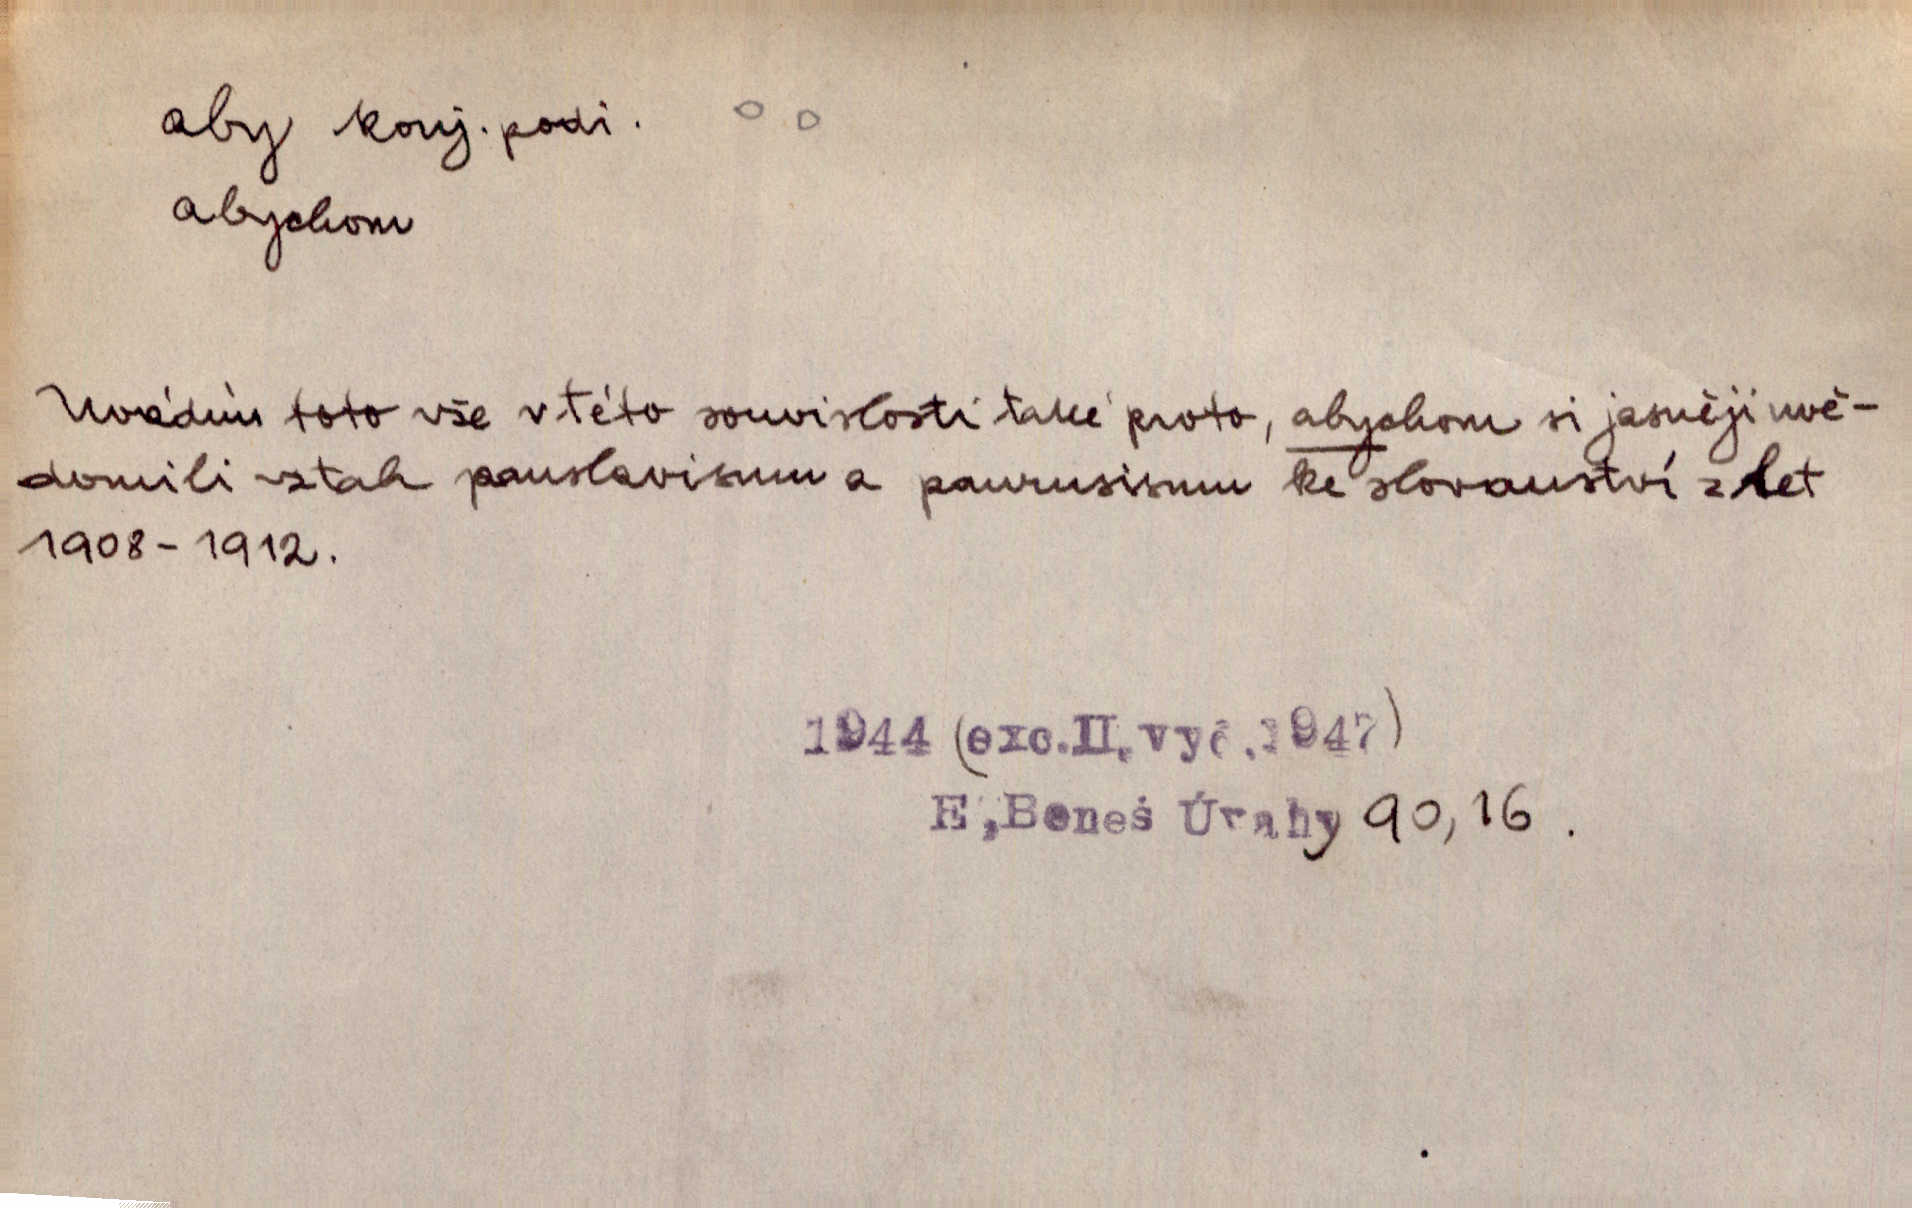 aby konj. podř.
abychom
Uvádím toto vše v této souvislosti také proto, abychom si jasněji uvě-
domili vztah panslavismu a panrusismu ke slovanství z let
1908 - 1912.
1944 (exc. II. vyd. 1947)
E. Beneš Úvahy 90, 16.